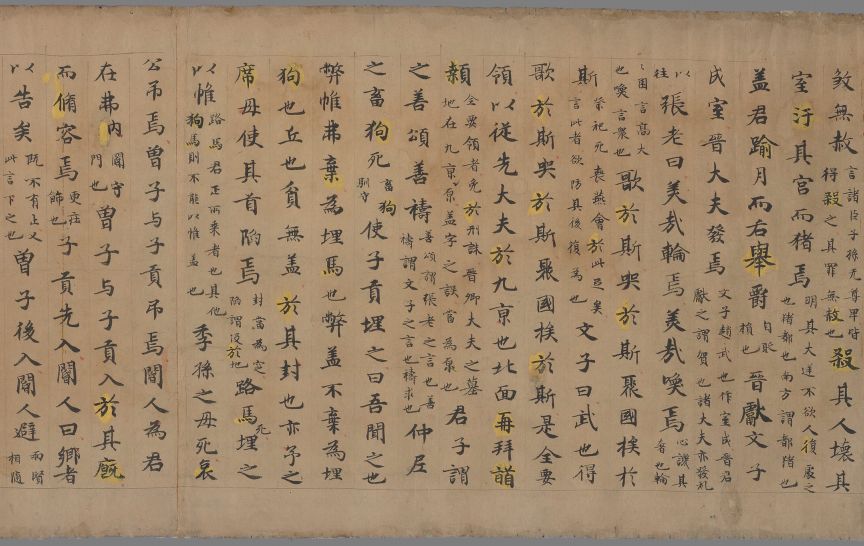 敘無赦言諸臣子孫无尊卑皆得殺之其罪無赦也殺其人壞其
室汙其宮而猪焉明其大逆不欲人復處之也猪都也南方謂都猪也
盖君踰月而右舉爵自貶損也晉獻文子
成室晉大夫發焉文子趙武也作室成晉君獻之謂賀也諸大夫亦發礼
以往張老曰美哉輪焉美哉喚焉心譏其奢也輪
輪囷言高大也喚言衆也歌於斯哭於斯聚國挨於
斯祭祀死喪燕會於此足矣言此者欲防其後復為也文子曰武也得
歌於斯哭於斯聚國挨於斯是全要
領以從先大夫於九京也北面再拜䭫
顙全要領者免於刑誅晉卿大夫之墓地在九京原盖字之誤當為原也君子謂
之善頌善禱善頌謂張老之言也善禱謂文子之言也禱求也仲尼
之畜狗死畜狗馴守使子貢埋之曰吾聞之也
弊帷弗棄為埋馬也弊盖不棄為埋
狗也丘也貧無盖於其封也亦予之
席毋使其首陷焉封當為窆陷謂没於地路馬死埋之
以帷路馬君正所乘者也其他狗馬則不能以帷盖也季孫之母死哀
公吊焉曾子与子貢吊焉閽人為君
在弗内閽守門也曾子与子貢入於其廐
而脩容焉更庄飾也子貢先入閽人曰鄉者
以告矣既不有止又此言下之也曾子後入閽人避兩賢相随